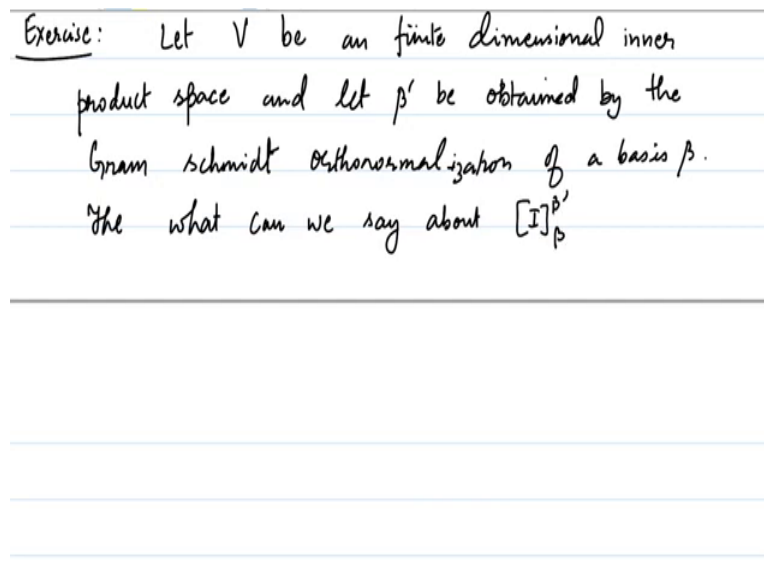 Exercise: Let V be an finite dimensional inner
product space and let β' be obtained by the
Gram schmidt orthonormalization of a basis β.
The what can we say about [I]_β^β'